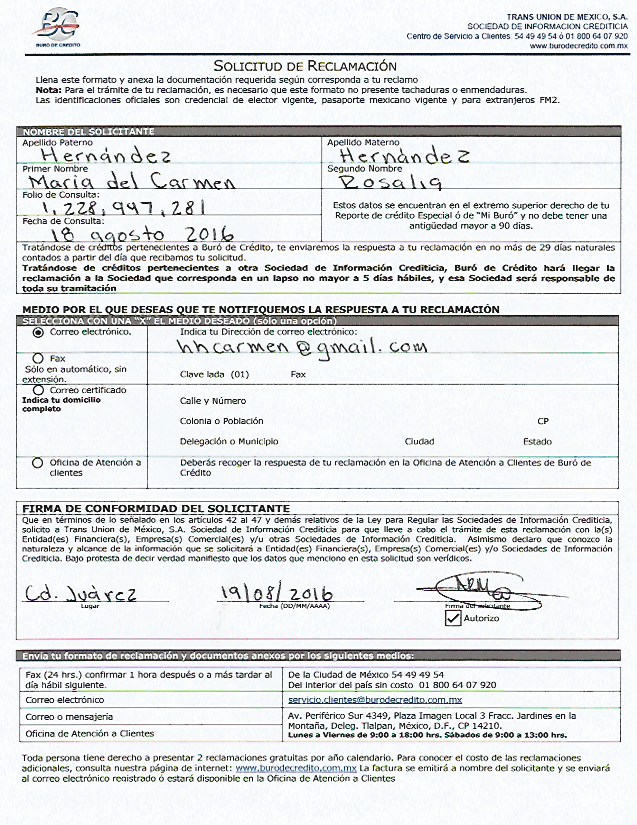 BC
BURO DE CREDITO
TRANS UNION DE MEXICO, S.A.
SOCIEDAD DE INFORMACION CREDITICIA
Centro de Servicio a Clientes 54 49 49 54 ó 01 800 64 07 920
www.burodecredito.com.mx
SOLICITUD DE RECLAMACIÓN
Llena este formato y anexa la documentación requerida según corresponda a tu reclamo
Nota: Para el trámite de tu reclamación, es necesario que este formato no presente tachaduras o enmendaduras.
Las identificaciones oficiales son credencial de elector vigente, pasaporte mexicano vigente y para extranjeros FM2.
NOMBRE DEL SOLICITANTE
Apellido Paterno
Hernández
Apellido Materno
Hernández
Primer Nombre
María del Carmen
Segundo Nombre
Rosalia
Folio de Consulta:
1,228,997,281
Fecha de Consulta:
18 agosto 2016
Estos datos se encuentran en el extremo superior derecho de tu
Reporte de crédito Especial ó de "Mi Buró" y no debe tener una
antigüedad mayor a 90 días.
Tratándose de créditos pertenecientes a Buró de Crédito, te enviaremos la respuesta a tu reclamación en no más de 29 días naturales
contados a partir del día que recibamos tu solicitud.
Tratándose de créditos pertenecientes a otra Sociedad de Información Crediticia, Buró de Crédito hará llegar la
reclamación a la Sociedad que corresponda en un lapso no mayor a 5 días hábiles, y esa Sociedad será responsable de
toda su tramitación
MEDIO POR EL QUE DESEAS QUE TE NOTIFIQUEMOS LA RESPUESTA A TU RECLAMACIÓN
SELECCIONA CON UNA "X" EL MEDIO DESEADO (sólo una opción)
Correo electrónico.
Indica tu Dirección de correo electrónico:
hhcarmen@gmail.com
Fax
Sólo en automático, sin
extensión.
Clave lada (01) Fax
Correo certificado
Indica tu domicilio
completo
Calle y Número
Colonia o Población CP
Delegación o Municipio Ciudad Estado
Oficina de Atención a
clientes
Deberás recoger la respuesta de tu reclamación en la Oficina de Atención a Clientes de Buró de
Crédito
FIRMA DE CONFORMIDAD DEL SOLICITANTE
Que en términos de lo señalado en los artículos 42 al 47 y demás relativos de la Ley para Regular las Sociedades de Información Crediticia,
solicito a Trans Union de México, S.A. Sociedad de Información Crediticia para que lleve a cabo el trámite de esta reclamación con la(s)
Entidad(es) Financiera(s), Empresa(s) Comercial(es) y/u otras Sociedades de Información Crediticia. Asimismo declaro que conozco la
naturaleza y alcance de la información que se solicitará a Entidad(es) Financiera(s), Empresa(s) Comercial(es) y/o Sociedades de Información
Crediticia. Bajo protesta de decir verdad manifiesto que los datos que menciono en esta solicitud son verídicos.
Cd. Juárez
19/08/2016
Lugar
Fecha (DD/MM/AAAA)
Firma del solicitante
Autorizo
Envía tu formato de reclamación y documentos anexos por los siguientes medios:
Fax (24 hrs.) confirmar 1 hora después o a más tardar al
día hábil siguiente.
De la Ciudad de México 54 49 49 54
Del interior del país sin costo 01 800 64 07 920
Correo electrónico
servicio.clientes@burodecredito.com.mx
Correo o mensajería
Oficina de Atención a Clientes
Av. Periférico Sur 4349, Plaza Imagen Local 3 Fracc. Jardines en la
Montaña, Deleg. Tlalpan, México, D.F., CP 14210.
Lunes a Viernes de 9:00 a 18:00 hrs. Sábados de 9:00 a 13:00 hrs.
Toda persona tiene derecho a presentar 2 reclamaciones gratuitas por año calendario. Para conocer el costo de las reclamaciones
adicionales, consulta nuestra página de internet: www.burodecredito.com.mx La factura se emitirá a nombre del solicitante y se enviará
al correo electrónico registrado ó estará disponible en la Oficina de Atención a Clientes